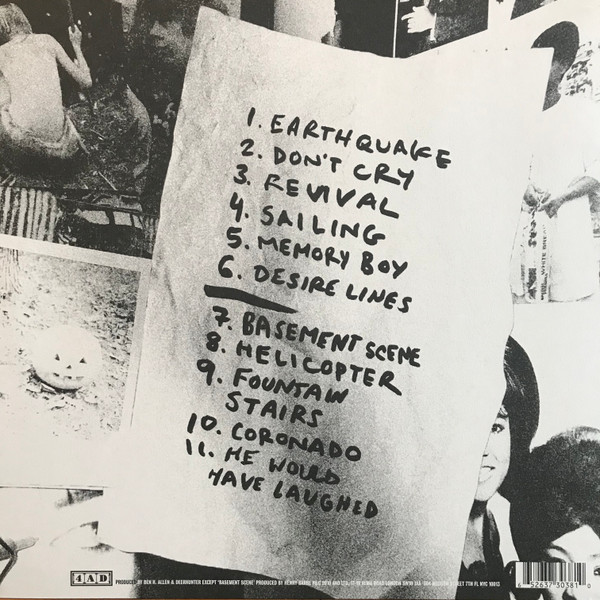 1. EARTHQUAKE
2. DON'T CRY
3. REVIVAL
4. SAILING
5. MEMORY BOY
6. DESIRE LINES
7. BASEMENT SCENE
8. HELICOPTER
9. FOUNTAIN
STAIRS
10. CORONADO
11. HE WOULD
HAVE LAUGHED
4AD PRODUCED BY BEN H. ALLEN & DEERHUNTER EXCEPT "BASEMENT SCENE" PRODUCED BY HENRY
6 52637 30381 0